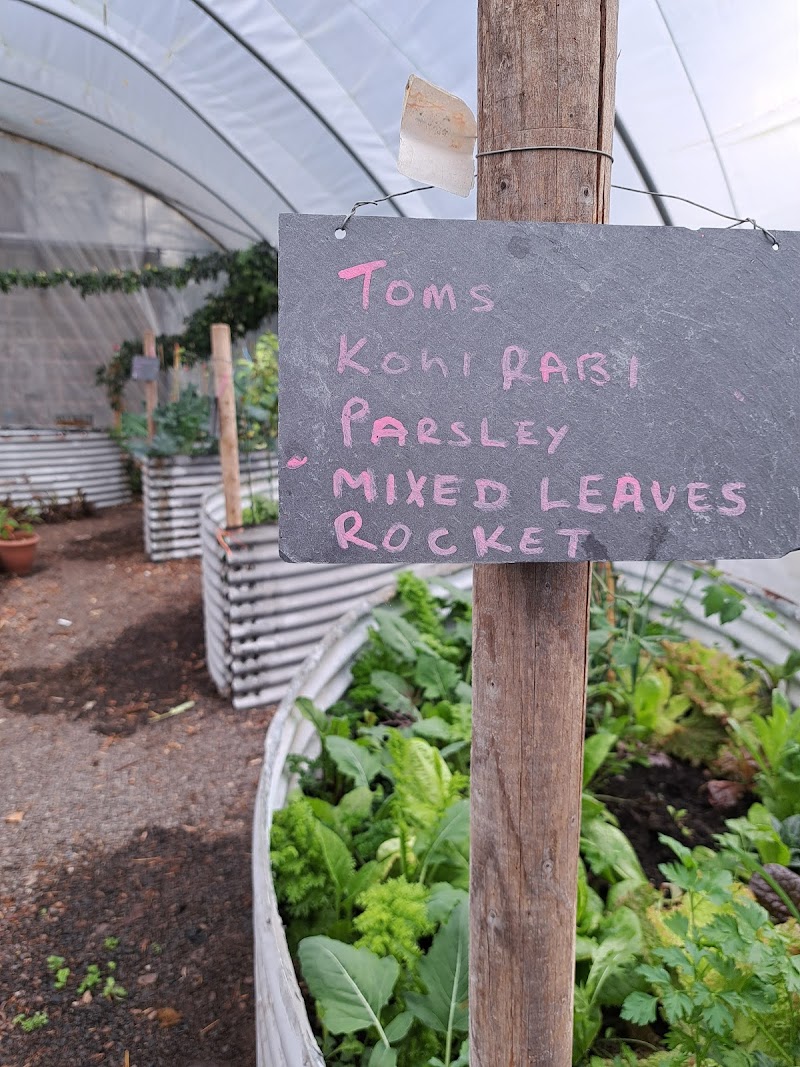 TOMS
KOHl RABI
PARSLEY
MIXED LEAVES
ROCKET